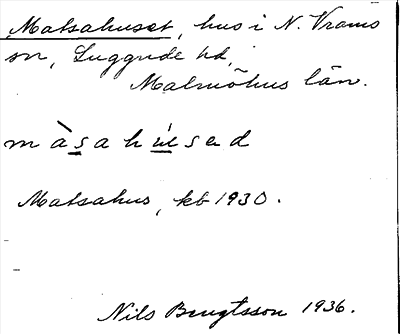 Matsahuset, hus i N. Vrams
sn, Luggude hd,
Malmöhus län.
m à s a h ú s e d
Matsahus, kb 1930.
Nils Bengtsson 1936.